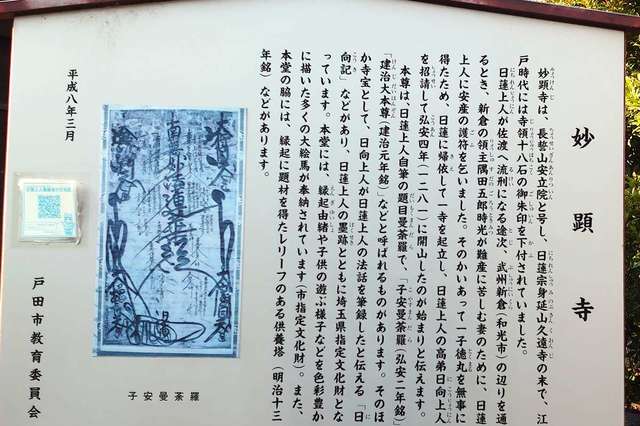 妙顕寺
妙顕寺は、長誓山安立院と号し、日蓮宗身延山久遠寺の末で、江
戸時代には寺領十八石の御朱印を下付されていました。
日蓮上人が佐渡へ流刑になる途次、武州新倉（和光市）の辺りを通
るとき、新倉の領主隅田五郎時光が難産に苦しむ妻のために、日蓮
上人に安産の護符を乞いました。そのかいあって一子徳丸を無事に
得たため、日蓮に帰依して一寺を起立し、日蓮上人の高弟日向上人
を招請して弘安四年（一二八一）に開山したのが始まりと伝えます。
本尊は、日蓮上人自筆の題目曼荼羅で、「子安曼荼羅（弘安二年銘）」
「建治大本尊（建治元年銘）」などと呼ばれるものがあります。そのほ
か寺宝として、日向上人が日蓮上人の法話を筆録したと伝える「日
向記」などがあり、日蓮上人の墨跡とともに埼玉県指定文化財とな
っています。本堂には、縁起由緒や子供の遊ぶ様子などを色彩豊か
に描いた多くの大絵馬が奉納されています（市指定文化財）。また、
本堂の脇には、縁起に題材を得たレリーフのある供養塔（明治十三
年銘）などがあります。
平成八年三月
戸田市教育委員会
子安曼荼羅